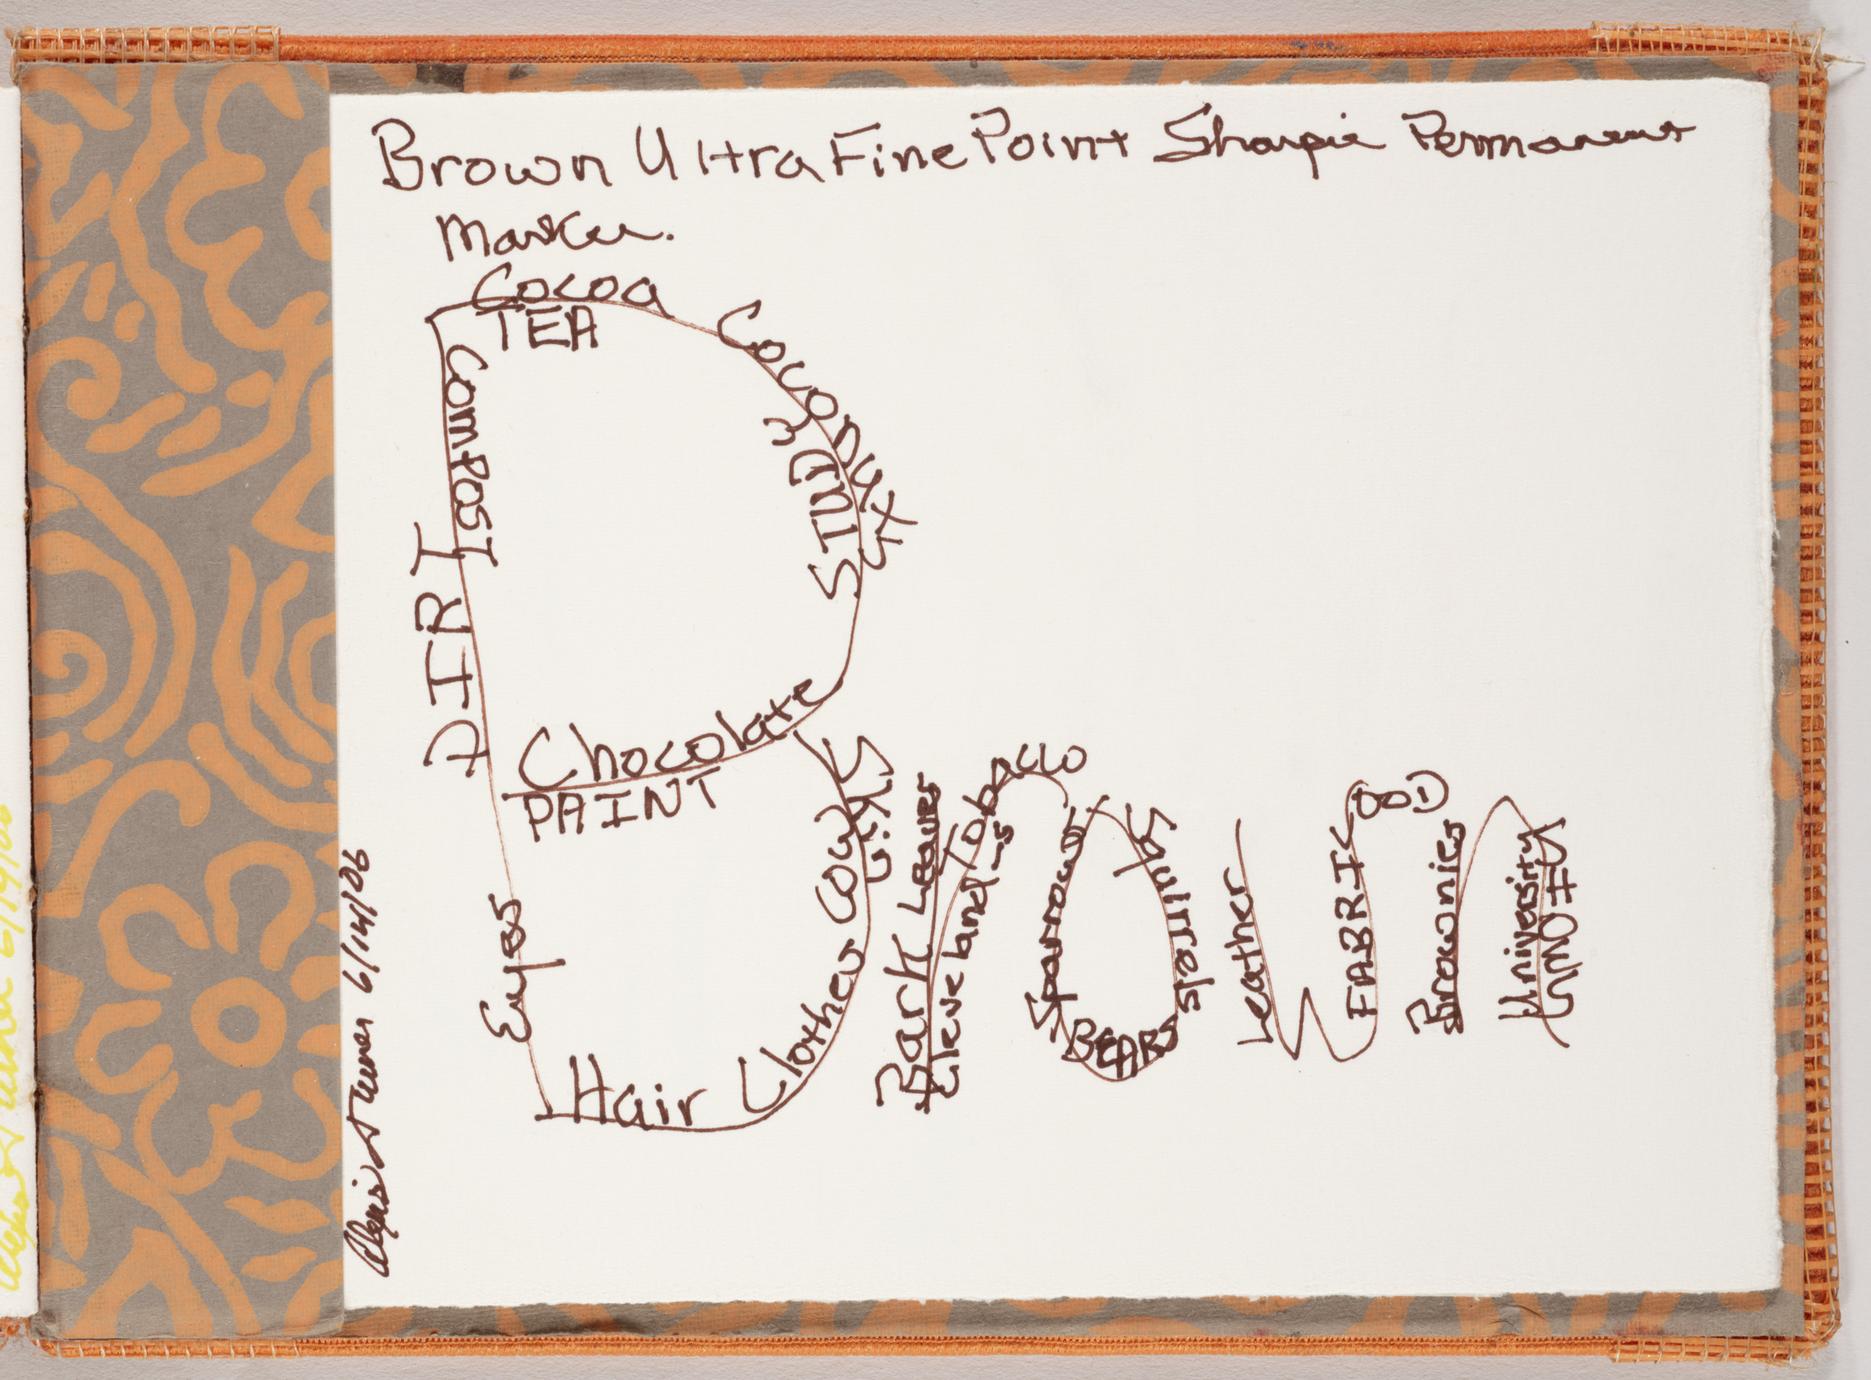 Brown Ultra Fine Point Sharpie Permanent
Marker.
Cocoa
TEA
Coconut
STUDY
ComPOST
DIRT
Chocolate
PAINT
Eyes
Hair
Clothes
Cow
Skin
Bark Leaves
Cleveland-s
Tobacco
Sparrows
BEARS
Squirrels
Leather
FABRIC
Brownies
University
UNIOWN
6/14/06